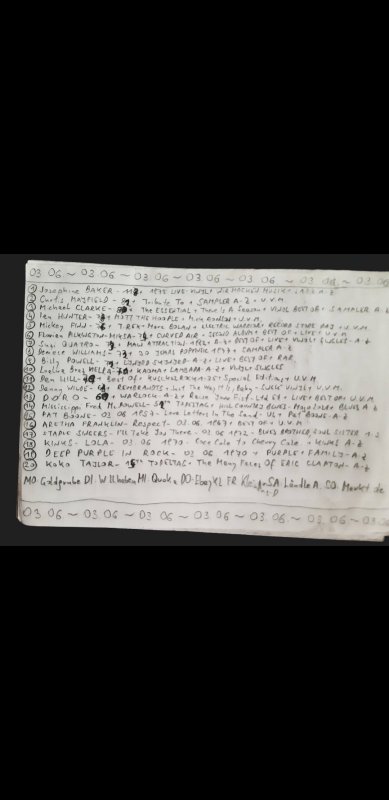 03 06 ~ 03 06 ~ 03 06 ~ 03 06 ~ 03 06 ~ 03 06 ~ 03 06 ~ 03 06
① Josephine BAKER - + 1975 LIVE - VINYL + A-Z
② Curtis MAYFIELD - + Tribute To + SAMPLER A-Z + U.V.M
③ Michael CLARKE - + The ESSENTIAL + There Is A Season + VINYL BEST OF + SAMPLER A-Z
④ Ian HUNTER - + MOTT THE HOOPLE + Mick RONSON + U.V.M.
⑤ Mickey Finn - + T. REX + Marc BOLAN + ELECTRIC WARRIOR + RECORD STORE DAY + U.V.M
⑥ Florian PILKINGTON-MIKSA - + CURVED AIR + SECOND ALBUM + BEST OF + LIVE + U.V.M
⑦ Suzi QUATRO - + MAIN ATTRACTION 1982 + A-Z + BEST OF + LIVE + VINYL + SINGLES - A-Z
⑧ Deniece WILLIAMS - + 20 JOHRE POPMUSIC 1977 + SAMPLER A-Z
⑨ Billy POWELL - + LYNYRD SKYNYRD - A-Z + LIVE + BEST OF + RAR
⑩ + KAOMA + LAMBADA - A-Z + VINYL + SINGLES
⑪ Dan HILL - + Best Of + KUSCHELROCK 1-25 + Special Edition + U.V.M
⑫ Danny WILDE - + REMBRANDTS - Just The Way It Is, Baby - SINGLE VINYL + U.V.M.
⑬ DORO - + WARLOCK - A-Z + Raise Your Fist - Ltd Ed + LIVE + BEST OF + U.V.M
⑭ Mississippi Fred M. DOWELL - TODESTAG + HILL COUNTRY BLUES - + BLUES A-Z
⑮ PAT BOONE - 03 06 1957 - Love Letters In The Sand - + Pat BOONE - A-Z
⑯ ARETHA FRANKLIN - Respect - 03. 06. 1967 + BEST OF + U.V.M
⑰ STAPLE SINGERS - I'll Take You There - 03 06 1972 - BLUES BROTHER, SOUL SISTER A-Z
⑱ KINKS - LOLA - 03 06 1970 - Coca Cola To Cherry Cola + KINKS A-Z
⑲ DEEP PURPLE IN ROCK - 03 06 1970 + PURPLE + FAMILY - A-Z
⑳ Koko TAYLOR - TODESTAG + The Many Faces OF ERIC CLAPTON A-Z
MO Goldgrube DI. Willhaben MI Quoka DO-Ebay KL FR SA. Ländle A. SO. Markt de
03 06 ~ 03 06 ~ 03 06 ~ 03 06 ~ 03 06 ~ 03 06 ~ 03 06 ~ 03 06